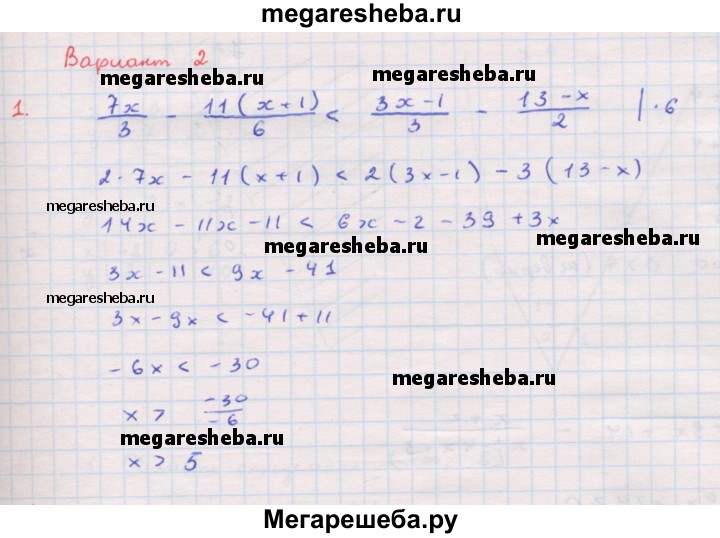 megaresheba.ru
Вариант 2
megaresheba.ru
megaresheba.ru
1. 7x/3 - 11(x+1)/6 < 3x-1/3 - 13-x/2 | · 6
2·7x - 11(x+1) < 2(3x-1) - 3(13-x)
megaresheba.ru
14x - 11x - 11 < 6x - 2 - 39 + 3x
megaresheba.ru
megaresheba.ru
3x - 11 < 9x - 41
megaresheba.ru
3x - 9x < -41 + 11
-6x < -30
megaresheba.ru
x > -30/-6
megaresheba.ru
x > 5
Мегарешеба.ру